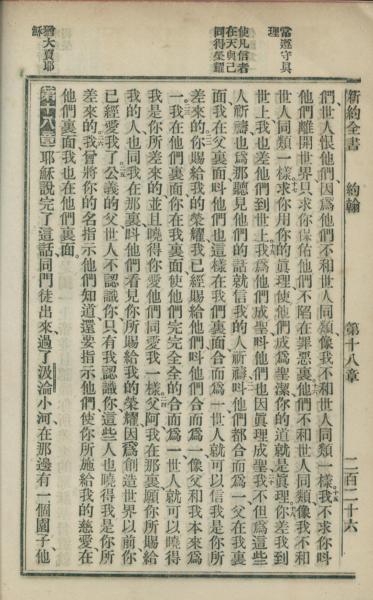 新約全書 約翰 第十八章 二百二十六
常遵守真
理
使凡信者
在天與己
同得榮耀
猶大賣耶
穌
們世人恨他們因爲他們不和世人同類像我不和世人同類一樣我不求你呌
他們離開世界只求你保佑他們不陷在罪惡裏他們不和世人同類像我不和
世人同類一樣求你用你的眞理使他們成爲聖潔你的道就是眞理你差我到
世上我也差他們到世上我爲他們成聖呌他們也因眞理成聖我不但爲這些
人祈禱也爲那聽見他們的話就信我的人祈禱呌他們都合而爲一父在我裏
面我在父裏面呌他們也這樣在我們裏面合而爲一世人就可以信我是你所
差來的你賜給我的榮耀我已經賜給他們呌他們合而爲一像父和我本來爲
一我在他們裏面你在我裏面使他們完完全全的合而爲一世人就可以曉得
我是你所差來的並且曉得你愛他們同愛我一樣父阿我在那裏願你所賜給
我的人也同我在那裏呌他們看見你所賜給我的榮耀因爲創造世界以前你
已經愛我了公義的父世人不認識你只有我認識你這些人也曉得我是你所
差來的我曾將你的名指示他們知道還要指示他們使你所施給我的慈愛在
他們裏面我也在他們裏面
第十八章耶穌說完了這話同門徒出來過了汲淪小河在那邊有一個園子他